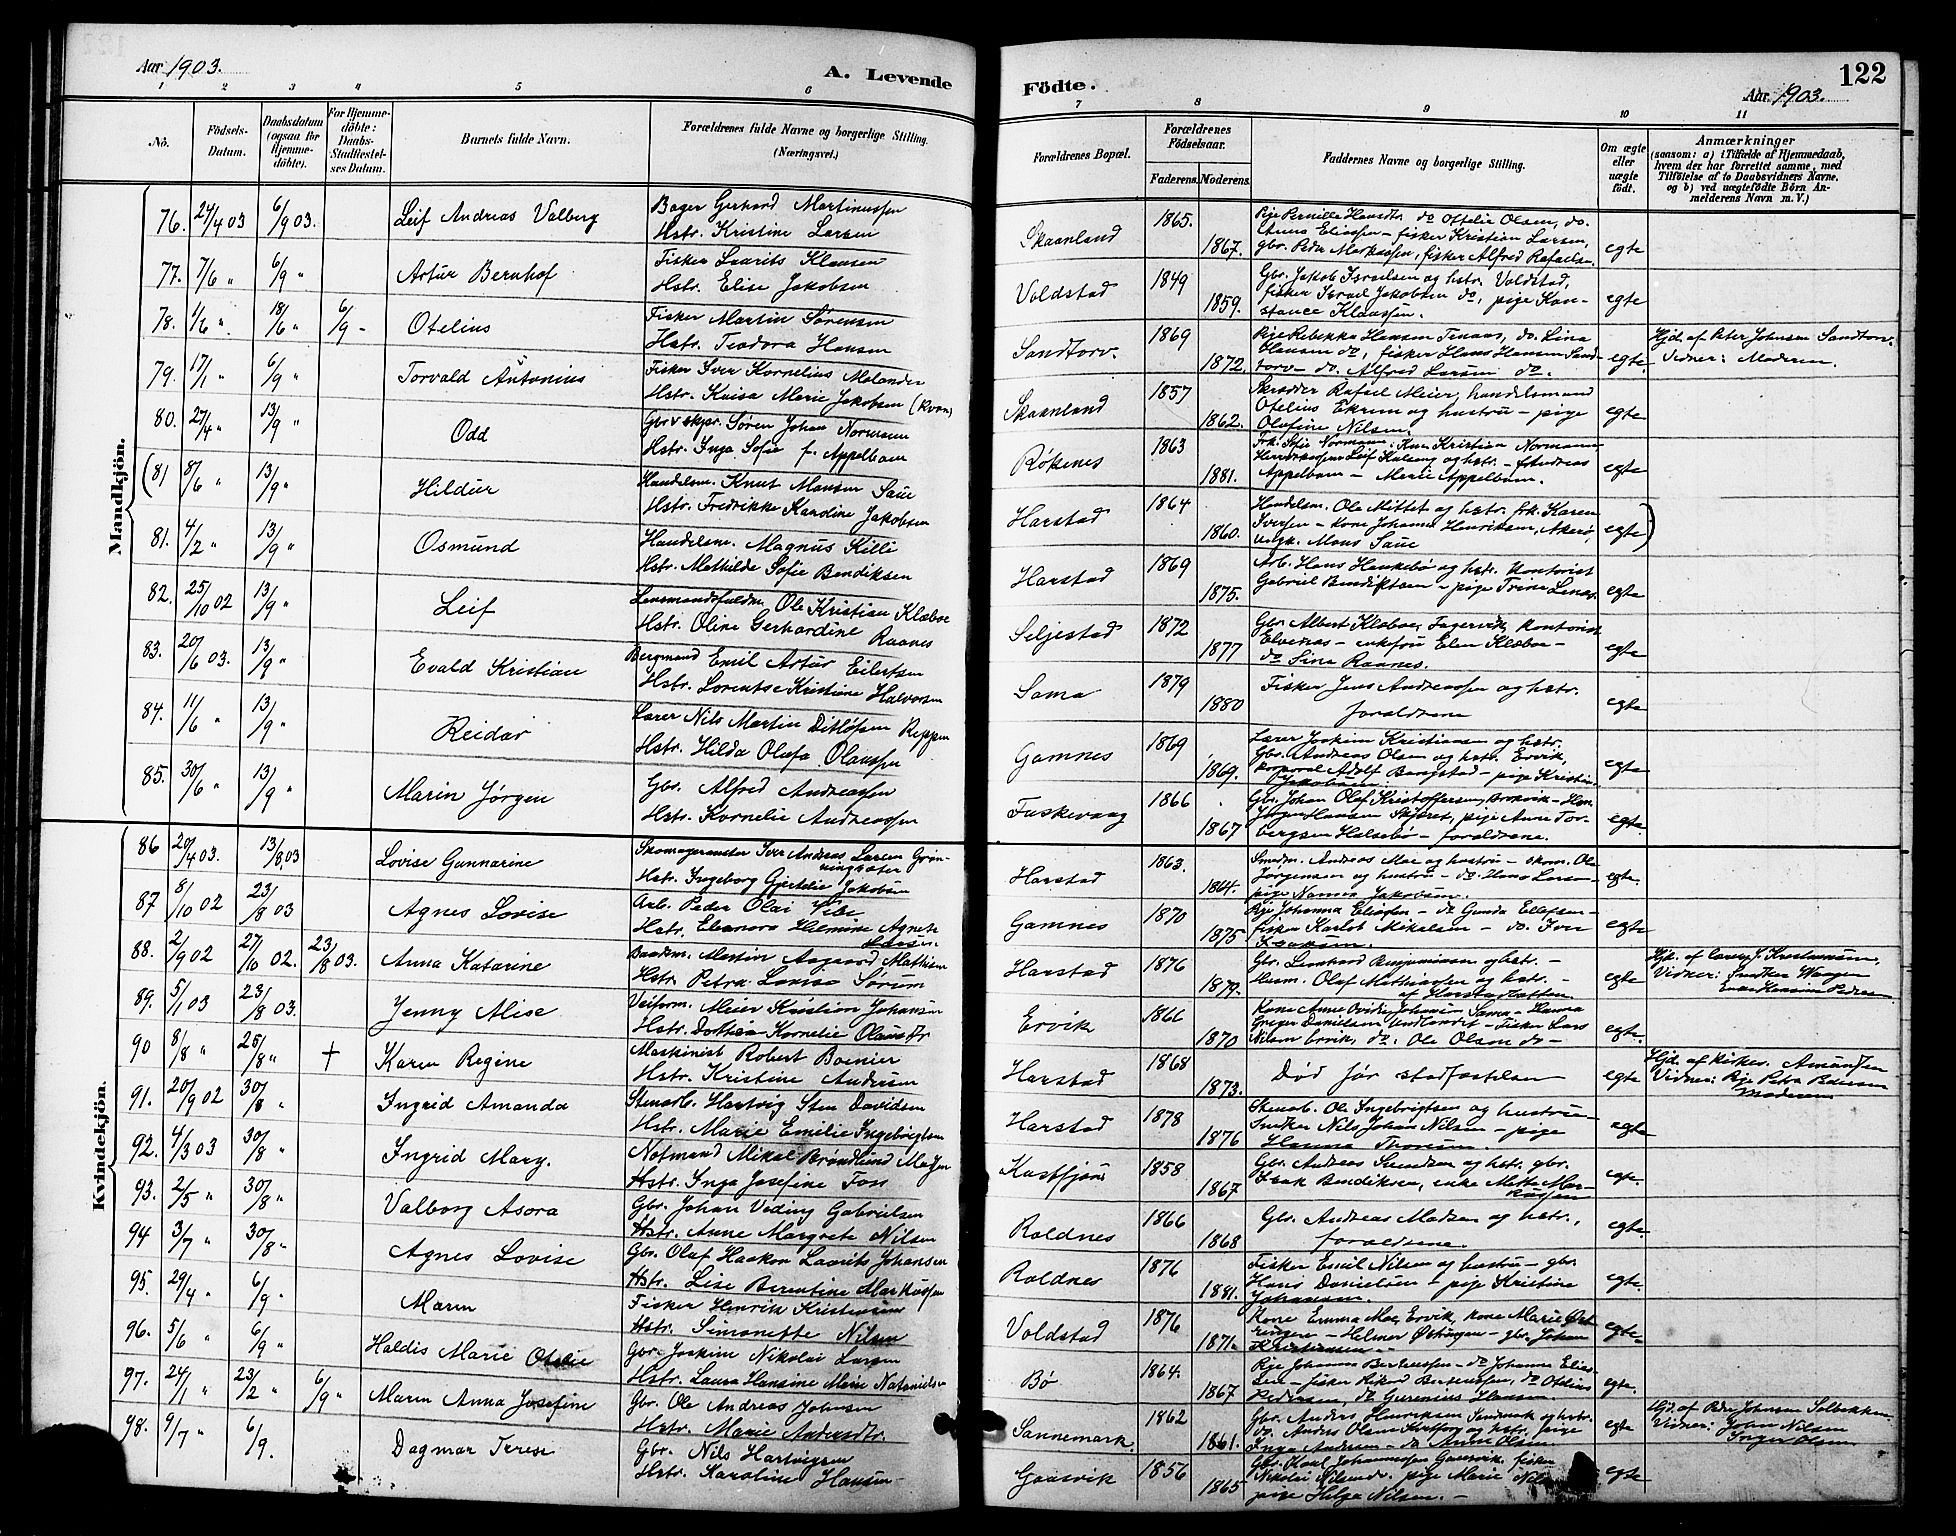 Aar 1903.
A. Levende
1 2 3 4 5 6
No.
Födsels-
Datum.
Daabsdatum
(ogsaa for
Hjemme-
döbte).
For Hjemme-
döbte:
Daabs-
Stadfæstel-
ses Datum.
Barnets fulde Navn.
Forældrenes fulde Navne og borgerlige Stilling.
(Næringsvei.)
Mandkjön.
76. 24/4 03 6/9 03. Leif Andreas Valberg
Bager Gerhard Martinussen
Hstr. Kristine Larsen
77. 7/6 " 6/9 " Artur Bernhof
Fisker Laurits Klausen
Hstr. Elise Jakobsen
78. 1/6 " 18/6 " 6/9 - Otelius
Fisker Martin Sørensen
Hstr. Teodora Hansen
79. 17/1 " 6/9 " Torvald Antonius
Fisker Iver Kornelius Molander
Hstr. Kaisa Marie Jakobsen (kvæn)
80. 27/4 " 13/9 " Odd
Søren Johan Normann
Hstr. Inga Sofie f. Appelbom
(81 8/6 " 13/9 " Hildur
Handelsm. Knut Monsen Saue
Hstr. Fredrikke Karoline Jakobsen
81. 4/2 " 13/9 " Osmund
Handelsm. Magnus Killi
Hstr. Mathilde Sofie Bendiksen
82. 25/10 02 13/9 " Leif
Lensmandsfuldm. Ole Kristian Klæboe
Hstr. Oline Gerhardine Raanes
83. 20/6 03. 13/9 " Evald Kristian
Bergmand Emil Artur Eilertsen
Hstr. Lorentse Kristine Halvorsen
84. 11/6 " 13/9 " Reidar
Lærer Nils Martin Ditløfsen Reppen
Hstr. Hilda Olefa Olaussen
85. 30/6 " 13/9 " Marin Jørgen
Gbr. Alfred Andreassen
Hstr. Kornelie Andreassen
Kvindekjön.
86 20/4 03. 13/8 03 Lovise Gunnarine
Skomagermester Iver Andreas Larsen Grøn-
Hstr. Ingeborg Gjertelie Jakobsen
87 8/10 02 23/8 03 Agnes Lovise
Arb. Peder Olai
Hstr. Eleonora Helmine Agnete
88. 2/9 02 27/10 02. 23/8 03. Anna Katarine
Baadsm. Martin Aagaard Mathisen
Hstr. Petra Lovise Sørum
89. 5/1 03 23/8 03. Jenny Alise
Veiform. Meier Kristian Johansen
Hstr. Dorthea Kornelie Olausdtr
90 8/8 " 25/8 " + Karen Regine
Maskinist Robert Boenier
Hstr. Kristine Andersen
91. 20/9 02 30/8 " Ingrid Amanda
Stenarb. Hartvig Sten Davidsen
Hstr. Marie Emilie Ingebrigtsen
92. 4/3 03 30/8 " Ingrid Mary.
Notmand Mikal Brøndlund
Hstr. Inga Josefine Foss
93. 2/5 " 30/8 " Valborg Asora
Gbr. Johan Veding Gabrielsen
Hstr. Anne Margrete Nilsen
94 3/7 " 30/8 " Agnes Lovise
Gbr. Olaf Haakon Laurits Johansen
Hstr. Lise Berentine Markussen
95. 29/4 " 6/9 " Maren
Fisker Henrik Kristensen
Hstr. Simonette Nilsen
96. 5/6 " 6/9 " Haldis Marie Otelie
Gbr. Joakim Nikolai Larsen
Hstr. Laura Hansine Marie Natanielsen
97. 24/1 " 23/2 " 6/9 " Maren Anna Josefine
Gbr. Ole Andreas Johnsen
Hstr. Marie Andersdtr.
98. 9/7 " 6/9. Dagmar Terese
Gbr. Nils Hartvigsen
Hstr. Karoline Hansen
Födte.
122
Aar 1903.
7 8 9 10 11
Forældrenes Bopæl.
Forældrenes
Födselsaar.
Faderens. Moderens.
Faddernes Navne og borgerlige Stilling.
Om ægte
eller
uægte
födt.
Anmærkninger
(saasom: a) i Tilfælde af Hjemmedaab,
hvem der har forrettet samme, med
Tilföielse af to Daabsvidners Navne,
og b) ved uægtefödte Börn An-
melderens Navn m. V.)
Skaanland 1865. 1867. egte
Pige Pernille Hansdtr. do Otelie Olsen, do.
Anna Eliassen - fisker Kristian Larsen,
gbr. Peder Markussen, fisker Alfred Rafaelsen.
Voldstad 1849 1859. egte
Gbr. Jakob Israelsen og hstr. Voldstad,
fisker Israel Jakobsen do, pige Kon-
stance Klaussen.
Sandtorv. 1869 1872. egte
Pige Rebekka Hansen Trenaas, do. Lina
Hansen do, fisker Hans Hansen Sand-
torv - do. Alfred Larsen do.
Hjd. af Peter Johnsen Sandtorv.
Vidner: Moderen
Skaanland 1857 1862. egte
Skrædder Rafael Meier, handelsmand
Otelius Ekrem og hustru - pige
Olufine Nilsen.
Røkenes 1863 1881. egte
Frk. Sofie Normann, Kristian Normann
Leif Halseng og hstr. - Andreas
Appelbom - Marie Appelbom.
Harstad 1864 1860. egte)
Handelsm. Ole Mittet og hstr. frk. Karen
Iversen - kone Johanna Henriksen, Akerø,
ungk. Mons Saue
Harstad 1869 1875. egte
Arb. Hans Haukebø og hstr. Kontorist
Gabriel Bendiktsen - pige Trine
Seljestad 1872 1877 egte
Gbr. Albert Klæboe, Fagervik, kontorist
Elvenes - enkefru Elen Klæboe -
do Sina Raanes.
Sama 1879 1880 egte
Fisker Jens Andreassen og hstr.
forældrene
Gamnes 1869 1869. egte
Lærer Joakim Kristiansen og hstr.
Gbr. Andreas Olsen og hstr. Ervik,
korporal Adolf Bangstad - pige Kristin
Jakobsen.
Fuskevaag 1866 1867 egte
Gbr. Johan Olaf Kristoffersen, Brokvik - Han.
Jørgen Hansen Skjæret, pige Anne Tor-
bergsen Halsebø - forældrene.
Harstad 1863. 1864. egte
Smedm. Andreas Moe og hustru - skom. Ole
Jørgensen og hustru - do. Hans Larsen -
pige Nanna Jakobsen.
Gamnes 1870 1875 egte
Pige Johanna Eliassen - do Gunda Ellefsen -
fisker Karlot Mikalsen - do. Iver
Isaksen.
Harstad 1876 1879. egte
Gbr. Leonhard Benjaminsen og hstr. -
Husm. Olaf Mathiassen og hstr. -
af Harstadbotten
Vidner: Snedker Waagen
Ervik 1866 1870 egte.
Kone Anne Ovidia Johansen Sama - Hanna
Greger Danielsen Undlandet - Fisker Lars
Nilsen Ervik, do. Ole Olsen do -
Harstad 1868 1873. egte
Død før stadfæstelsen
Hjd. af kirkes. Amundsen
Vidner: Pige Petra Pedersen
Moderen
Harstad 1878 1876 egte
Stenarb. Ole Ingebrigtsen og hustru
Snedker Nils Johan Nilsen - pige
Hanna
Kastfjord 1858 1867 egte.
Gbr. Andreas Svendsen og hstr. gbr.
Isak Bendiksen, enke Mette Mar-
kussen
Roldnes 1866 1868 egte
Gbr. Andreas Madsen og hstr.,
forældrene.
Roldnes 1876 1881. egte
Fisker Emil Nilsen og hustru - gbr.
Hans Danielsen - pige Kristine
Johansen.
Voldstad 1876 1871. egte
Kone Emma Moe, Ervik, kone Marie Øst-
ringen - Helmer Østringen - gbr. Johan
Kristiansen.
Bø 1864. 1867 egte.
Pige Johanna Berteussen - do Johanna Elias-
sen - fisker Rikard Berteussen, do Otelius
Pedersen, do Gurenius Hansen
Sannemark. 1862 1861. egte
Gbr. Anders Henriksen Sandmark og hstr.
do. Anders Olsen og hstr. pige
Inga Andersen - do Anna Olsen.
Hjd. af Peder Johnsen Solbakken
Vidner: John Nilsen
Inger Olsen
Gausvik 1856 1865 egte
Gbr. Johannessen Gausvik, fisker
Nikolai Nilsen do. pige Marie Nils
pige Helga Nilsen. -